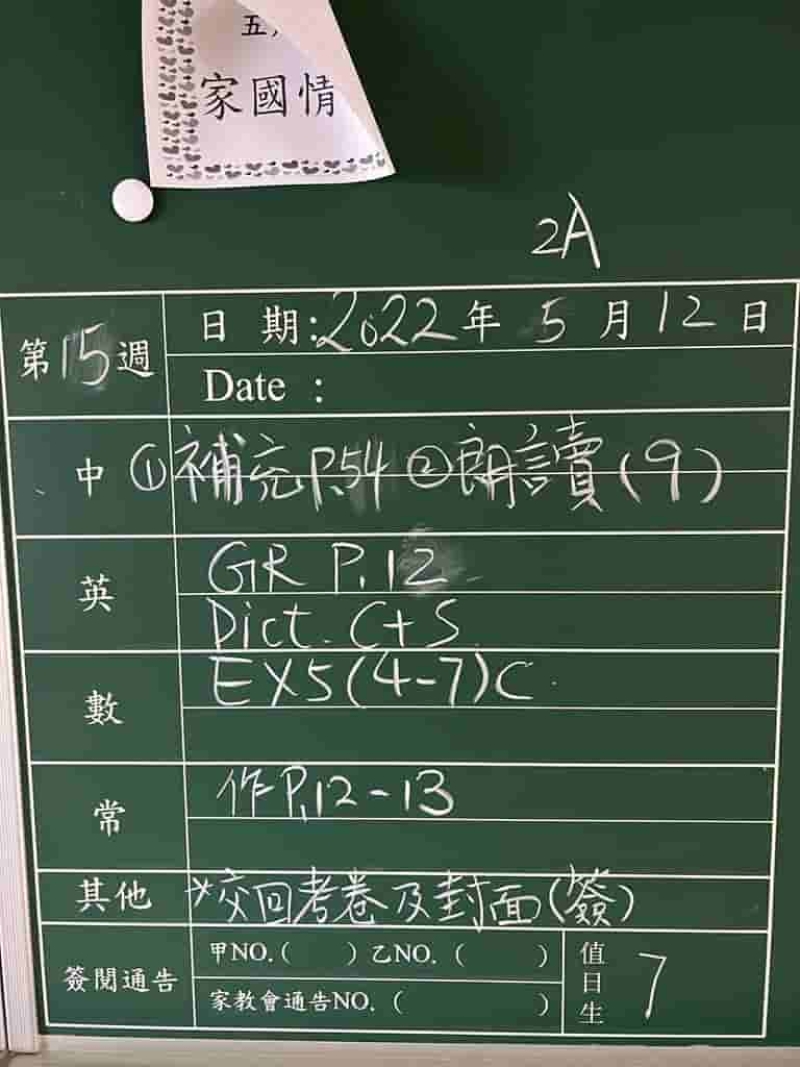 五
家國情
2A
第15週
日 期:2022年 5 月 12 日
Date :
中 ①補充P.54 ②朗讀(9)
英
GR P.12
Dict. C+S
數
EX5(4-7)C
常
作P.12-13
其他 *交回考卷及封面(簽)
簽閱通告
甲NO.( ) 乙NO.( )
家教會通告NO.( )
值日生 7